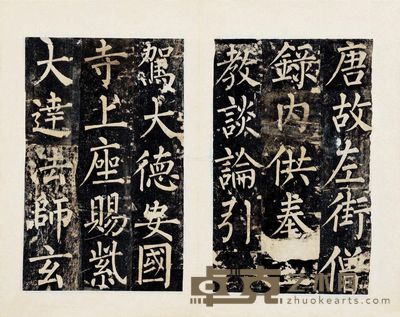 唐故左街僧
錄内供奉
教談論引
駕大德安國
寺上座賜紫
大達法師玄
卓克艺术网
zhuokearts.com